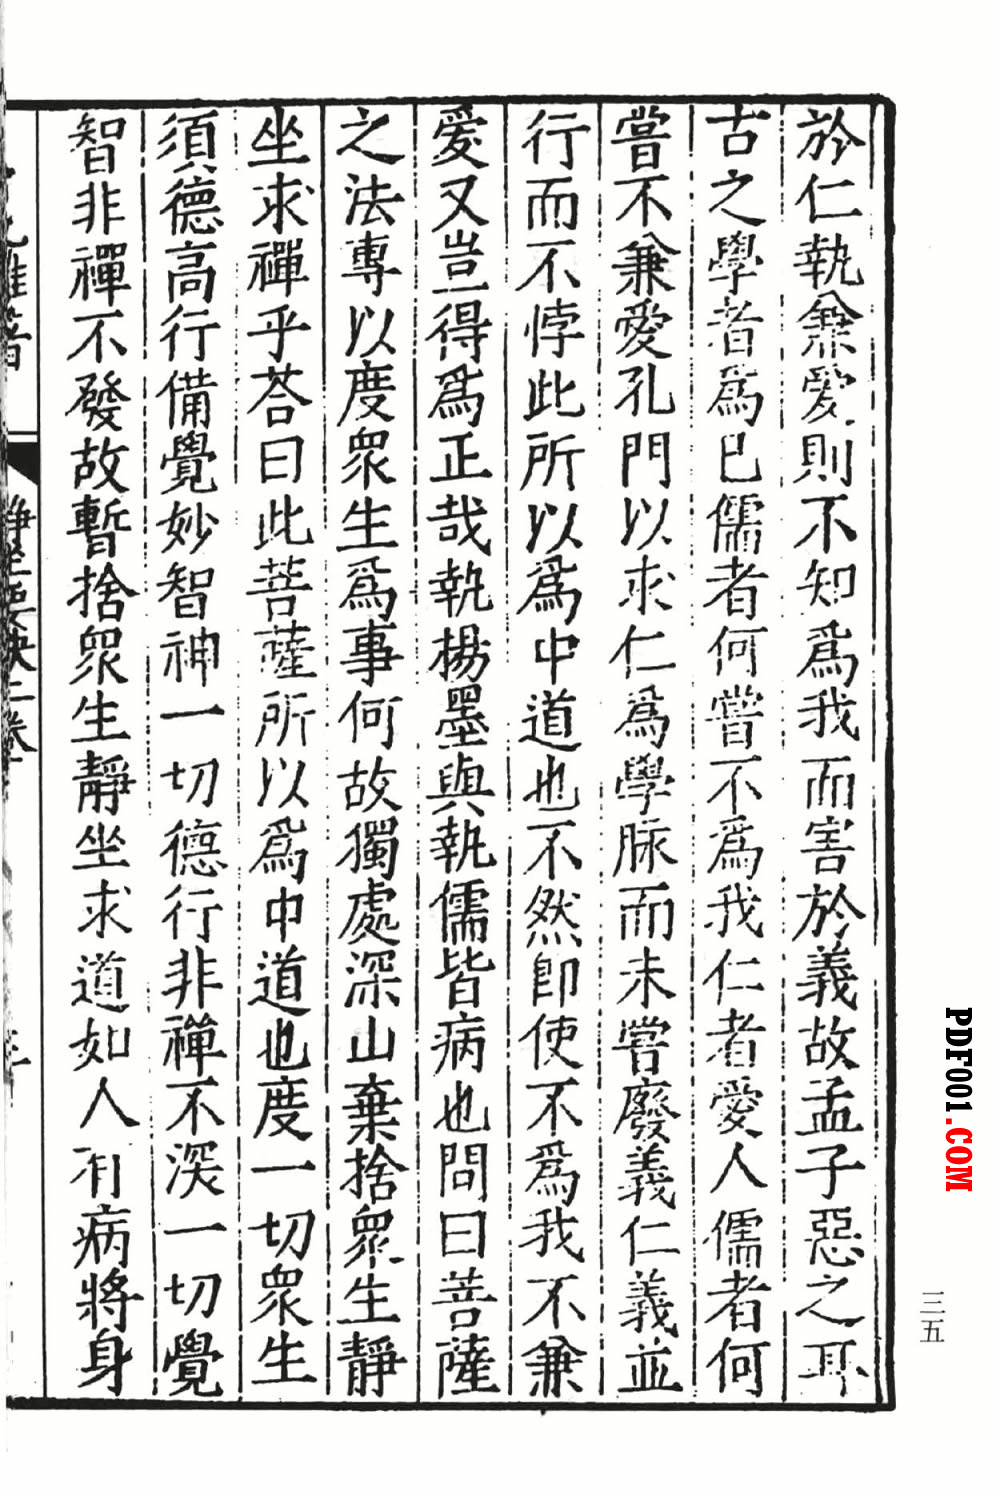 於仁執兼愛則不知爲我而害於義故孟子惡之耳
古之學者爲已儒者何嘗不爲我仁者愛人儒者何
嘗不兼愛孔門以求仁爲學脉而未嘗廢義仁義並
行而不悖此所以爲中道也不然卽使不爲我不兼
愛又豈得爲正哉執楊墨與執儒皆病也問曰菩薩
之法專以度衆生爲事何故獨處深山棄捨衆生靜
坐求禪乎荅曰此菩薩所以爲中道也度一切衆生
須德高行備覺妙智神一切德行非禪不深一切覺
智非禪不發故暫捨衆生靜坐求道如人有病將身
靜坐要訣二卷
三五
PDF001.COM